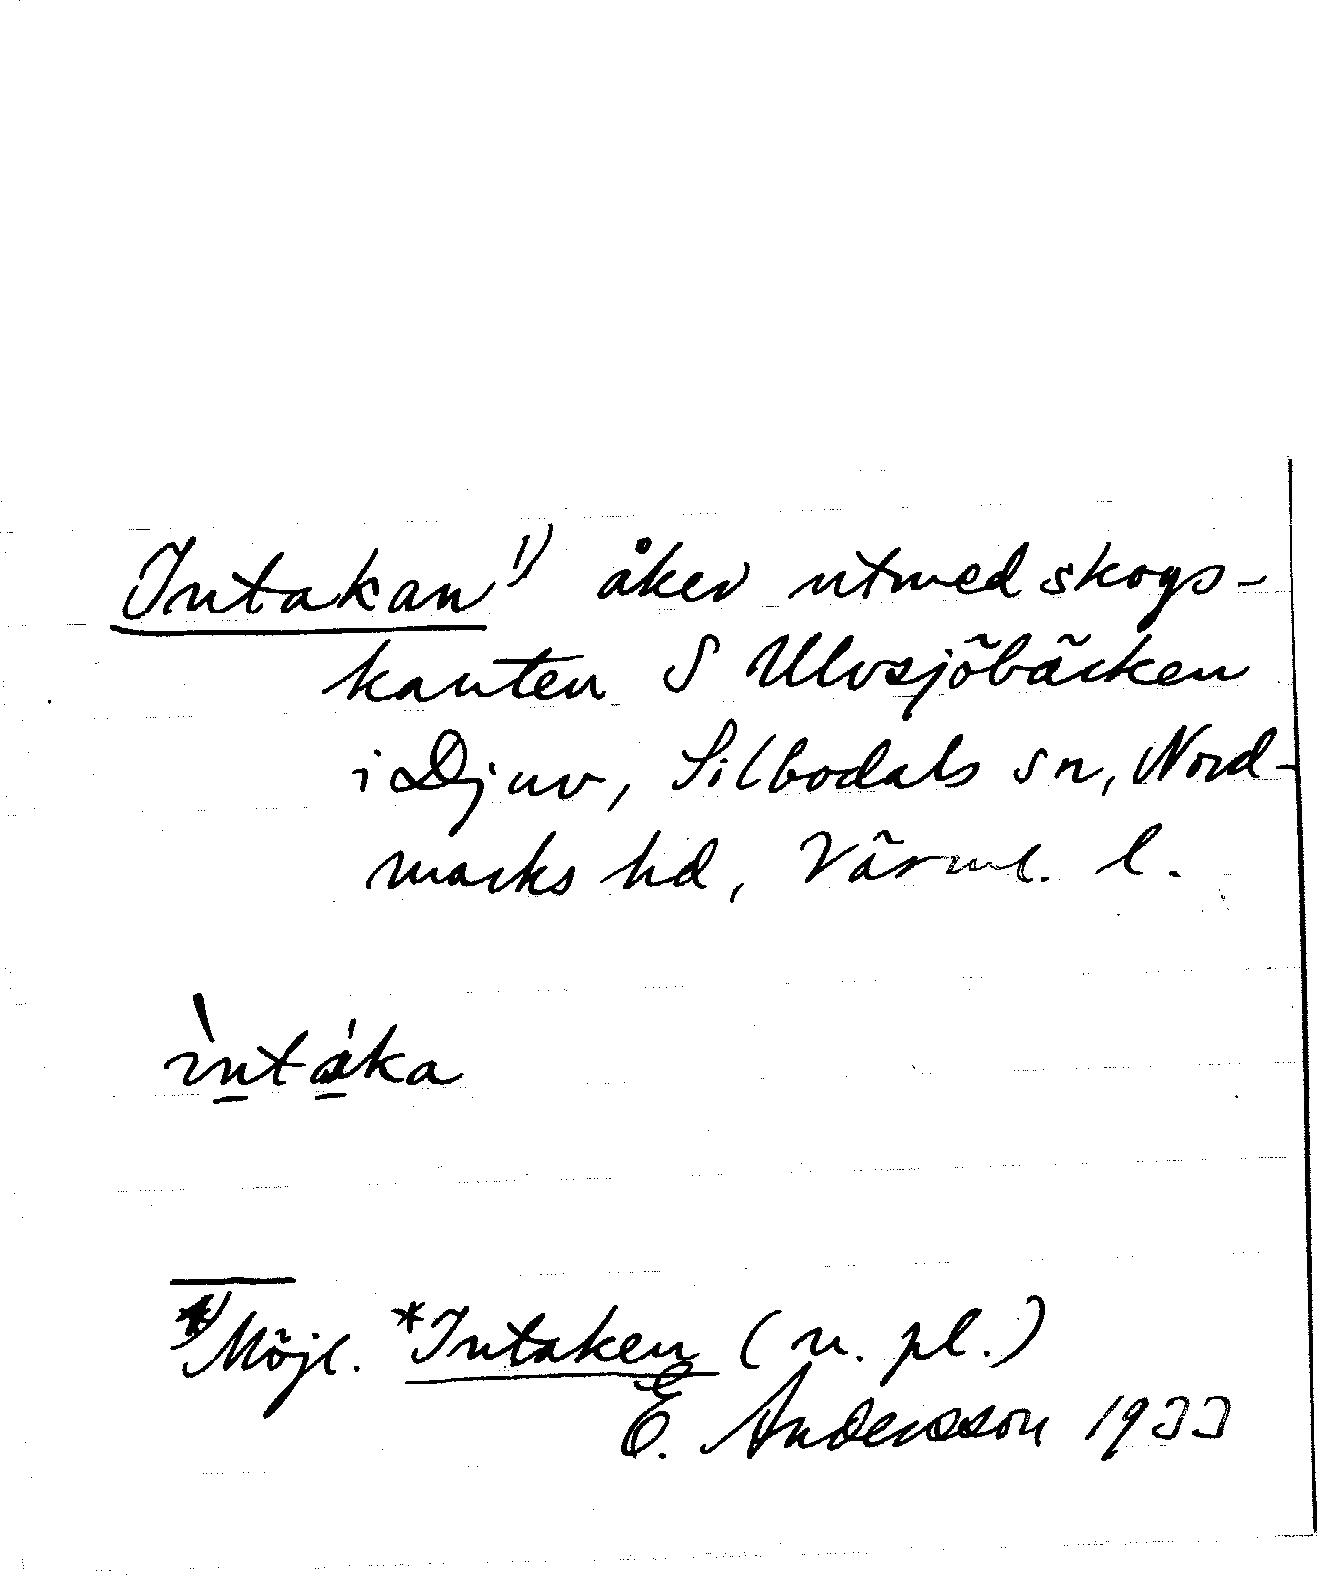 Intakan 1) åker utmed skogs-
kanten S Ulvsjöbäcken
i Djuv, Silbodals sn, Nord-
marks hd, Värml. l.
ìntáka
1) Möjl. *Intaken (n. pl.)
E. Andersson 1933